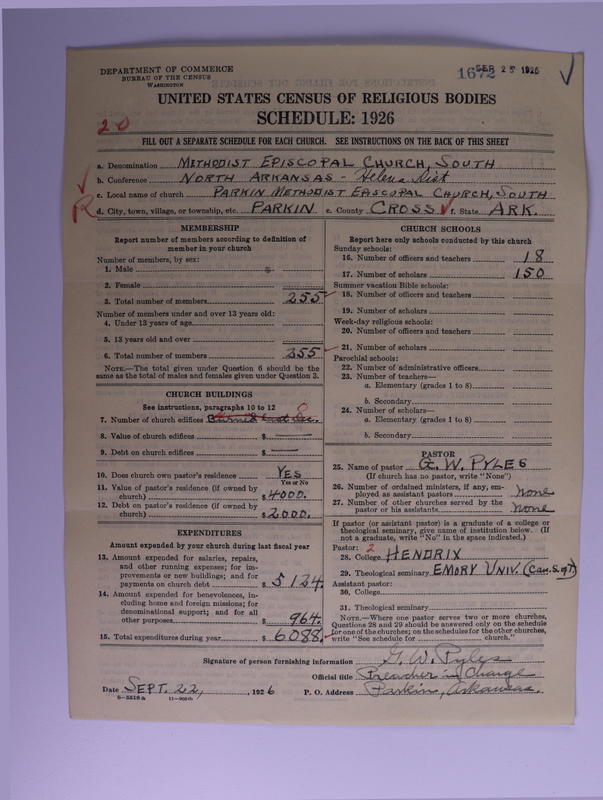 DEPARTMENT OF COMMERCE
BUREAU OF THE CENSUS
WASHINGTON
1672 SEP 25 1926
UNITED STATES CENSUS OF RELIGIOUS BODIES
SCHEDULE: 1926
20
FILL OUT A SEPARATE SCHEDULE FOR EACH CHURCH. SEE INSTRUCTIONS ON THE BACK OF THIS SHEET
a. Denomination METHODIST EPISCOPAL CHURCH, SOUTH
b. Conference NORTH ARKANSAS - Helena Dist
c. Local name of church PARKIN METHODIST EPISCOPAL CHURCH, SOUTH
R d. City, town, village, or township, etc. PARKIN e. County CROSS f. State ARK.
MEMBERSHIP
Report number of members according to definition of
member in your church
Number of members, by sex:
1. Male
2. Female
3. Total number of members 255
Number of members under and over 13 years old:
4. Under 13 years of age
5. 13 years old and over
6. Total number of members 255
NOTE.—The total given under Question 6 should be the
same as the total of males and females given under Question 3.
CHURCH BUILDINGS
See instructions, paragraphs 10 to 12
7. Number of church edifices Burned last Dec. 0
8. Value of church edifices $ —
9. Debt on church edifices $ —
10. Does church own pastor's residence YES
Yes or No
11. Value of pastor's residence (if owned by
church) $ 4000.
12. Debt on pastor's residence (if owned by
church) $ 2000.
EXPENDITURES
Amount expended by your church during last fiscal year
13. Amount expended for salaries, repairs,
and other running expenses; for im-
provements or new buildings; and for
payments on church debt $ 5124.
14. Amount expended for benevolences, in-
cluding home and foreign missions; for
denominational support; and for all
other purposes $ 964.
15. Total expenditures during year $ 6088.
CHURCH SCHOOLS
Report here only schools conducted by this church
Sunday schools:
16. Number of officers and teachers 18
17. Number of scholars 150
Summer vacation Bible schools:
18. Number of officers and teachers
19. Number of scholars
Week-day religious schools:
20. Number of officers and teachers
21. Number of scholars
Parochial schools:
22. Number of administrative officers
23. Number of teachers—
a. Elementary (grades 1 to 8)
b. Secondary
24. Number of scholars—
a. Elementary (grades 1 to 8)
b. Secondary
PASTOR
25. Name of pastor G. W. PYLES
(If church has no pastor, write "None")
26. Number of ordained ministers, if any, em-
ployed as assistant pastors none
27. Number of other churches served by the
pastor or his assistants none
If pastor (or assistant pastor) is a graduate of a college or
theological seminary, give name of institution below. (If
not a graduate, write "No" in the space indicated.)
Pastor: 2
28. College HENDRIX
29. Theological seminary EMORY UNIV. (Can. S. of T)
Assistant pastor:
30. College
31. Theological seminary
NOTE.—Where one pastor serves two or more churches,
Questions 28 and 29 should be answered only on the schedule
for one of the churches; on the schedules for the other churches,
write "See schedule for church."
Signature of person furnishing information G. W. Pyles
Official title Preacher in Charge
Date SEPT. 22, , 1926 P. O. Address Parkin, Arkansas.